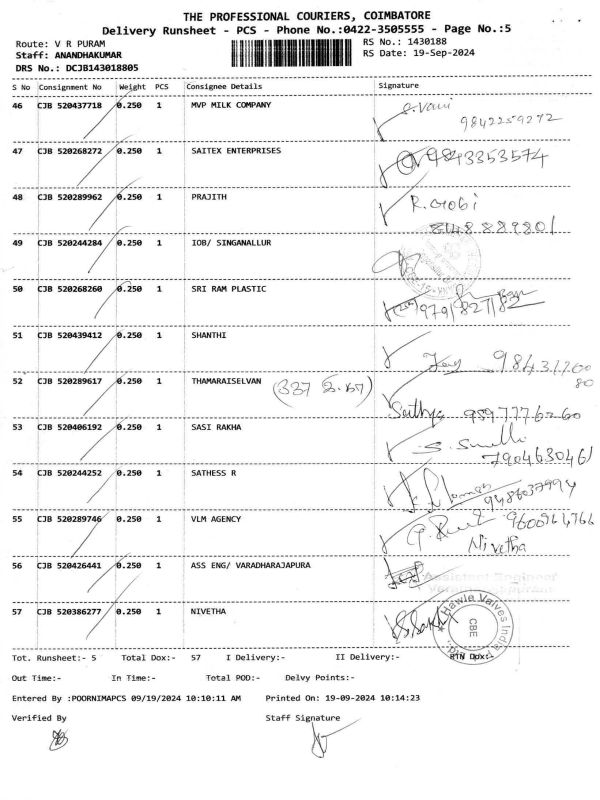 THE PROFESSIONAL COURIERS, COIMBATORE
Delivery Runsheet - PCS - Phone No.:0422-3505555 - Page No.:5
Route: V R PURAM
RS No.: 1430188
Staff: ANANDHAKUMAR
RS Date: 19-Sep-2024
DRS No.: DCJB143018805
S No Consignment No Weight PCS Consignee Details Signature
46 CJB 520437718 0.250 1 MVP MILK COMPANY S. Vani
9842259272
47 CJB 520268272 0.250 1 SAITEX ENTERPRISES 9843353574
48 CJB 520289962 0.250 1 PRAJITH R. Gobi
8148889801
49 CJB 520244284 0.250 1 IOB/ SINGANALLUR
50 CJB 520268260 0.250 1 SRI RAM PLASTIC
51 CJB 520439412 0.250 1 SHANTHI
52 CJB 520289617 0.250 1 THAMARAISELVAN
Sathya 9597776260
53 CJB 520406192 0.250 1 SASI RAKHA
7904630461
54 CJB 520244252 0.250 1 SATHESS R
9486037994
55 CJB 520289746 0.250 1 VLM AGENCY 9600964766
Nivetha
56 CJB 520426441 0.250 1 ASS ENG/ VARADHARAJAPURA
Assistant Engineer
57 CJB 520386277 0.250 1 NIVETHA
Hawle Valves India Pvt. Ltd.
CBE
Tot. Runsheet:- 5 Total Dox:- 57 I Delivery:- II Delivery:- RTN Dox:-
Out Time:- In Time:- Total POD:- Delvy Points:-
Entered By :POORNIMAPCS 09/19/2024 10:10:11 AM Printed On: 19-09-2024 10:14:23
Verified By Staff Signature